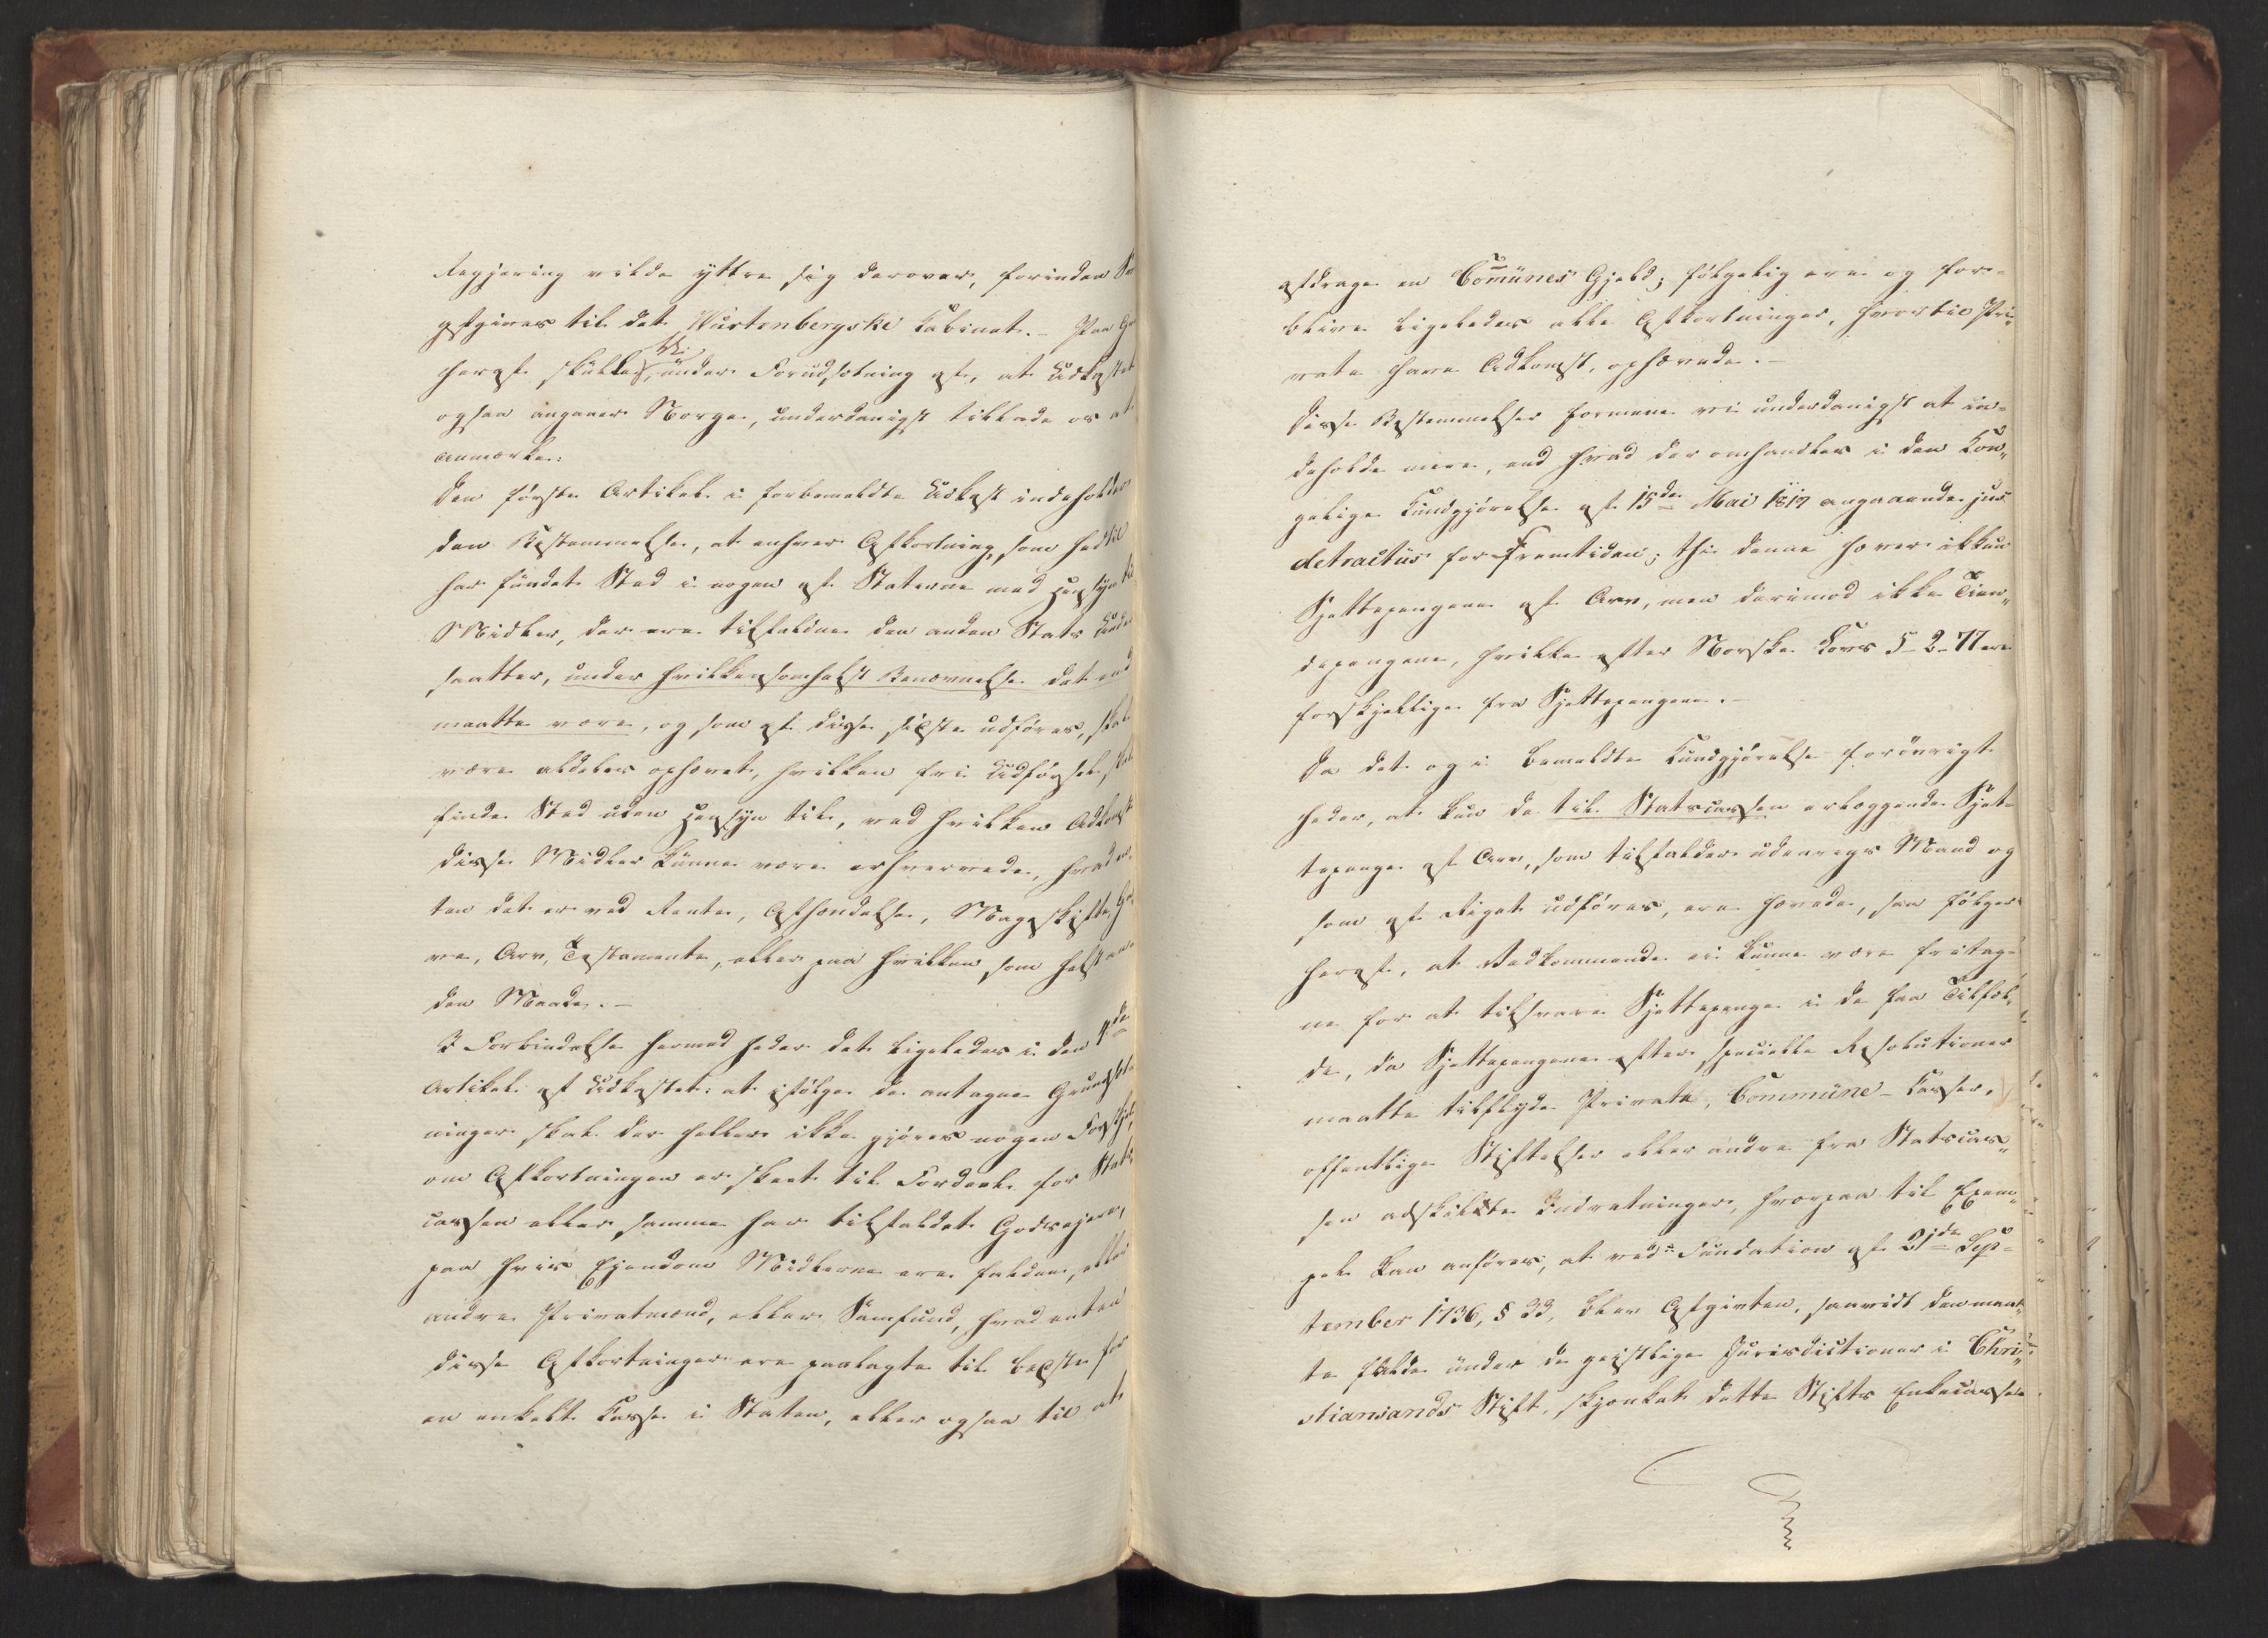 Regjering vilde yttre sig derover, forinden
afgives til det Würtenbergske Cabinet. – Paa
heraf skulle vi, under Forudsætning af, at Udkastet
ogsaa angaaer Norge, underdanigst tillade os at
anmærke:
Den første Artikel i forbemeldte Udkast indeholder
den Bestemmelse, at enhver Afkortning, som hidtil
har fundet Sted i nogen af Staterne med Hensyn til
Midler, der ere tilfaldne den anden Stats Under
saatter, under hvilkensomhelst Benævnelse det end
maatte være, og som af disse sidste udføres, skal
være aldeles ophævet, hvilken fri Udførsel skal
finde Sted uden Hensyn til, ved hvilken Adkomst
disse Midler kunne være erhvervede, hvad en
ten det er ved Rente, Afhændelse, Mageskifte, Ga
ve, Arv, Testamente, eller paa hvilken som helst an
den Maade. –
I Forbindelse hermed heder det ligeledes i den 4de
Artikel af Udkastet: at ifølge de antagne Grundsæt
ninger skal der heller ikke gjøres nogen Forskjel,
om Afkortningen er skeet til Fordeel for Stats
cassen eller samme har tilfaldet Godsejere,
paa hvis Ejendom Midlerne ere faldne, eller
andre Privatmænd, eller Samfund, hvad enten
disse Afkortninger ere paalagte til bedste for
en enkelt Casse i Staten, eller ogsaa til at
afdrage en Com̄unes Gjeld; følgelig ere og for-
blive ligeledes alle Afkortninger, hvortil Pri„
vate have Adkomst, ophævede. –
Disse Bestemmelser formene vi underdanigst at in-
deholde mere, end hvad der omhandles i den Kon„
gelige Kundgjørelse af 15de Mai 1817 angaaende jus
detractus for Fremtiden; thi denne hæver ikkun
Sjettepengene af Arv, men derimod ikke Tien„
depengene, hvilke efter Norske Lovs 5-2-77 ere
forskjellige fra Sjettepengene. –
Da det og i bemeldte Kundgjørelse forøvrigt
heder, at kun de til Statscassen erlæggende Sjet-
tepenge af Arv, som tilfalder udenrigs Mand og
som af Riget udføres, ere hævede, saa følger
heraf, at Vedkommende ei kunne være fritag-
ne for at tilsvare Sjettepenge i de faa Tilfæl„
de, da Sjettepengene efter specielle Resolutioner
maatte tilflyde Private, Commune-Casser,
offentlige Stiftelser eller andre fra Statscas„
sen adskilte Indretninger, hvorpaa til Exem„
pel kan anføres, at ved Fundation af 21de Sep-
tember 1736, § 33, blev Afgivten, saavidt den maat„
te falde under de geistlige Jurisdictioner i Chri„
stiansands Stift, skjænket dette Stifts Enkecasse